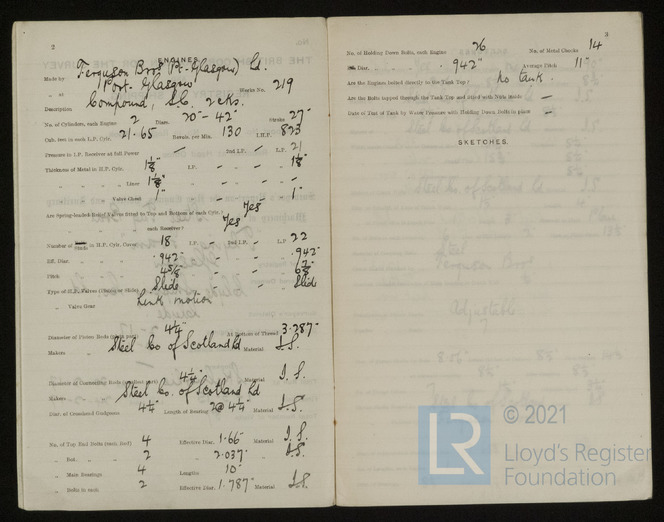 2
ENGINES.
Made by Ferguson Bros (Pt-Glasgow) Ld.
„ at Port-Glasgow Works No. 219
Description Compound, S.C. 2 cks.
No. of Cylinders, each Engine 2 Diars. 20"- 42" Stroke 27"
Cub. feet in each L.P. Cylr. 21.65 Revols. per Min. 130 I.H.P. 823
Pressure in I.P. Receiver at full Power – 2nd I.P. – L.P. 21
Thickness of Metal in H.P. Cylr. 1⅛" I.P. – – – 1⅛"
„ „ Liner 1⅛" – – – –
„ „ Valve Chest 1" – – – 1"
Are Spring-loaded Relief Valves fitted to Top and Bottom of each Cylr.? Yes
„ „ „ „ each Receiver? Yes
Number of Studs in H.P. Cylr. Cover 18 I.P. – 2nd I.P. – L.P. 22
Eff. Diar. .942" – – .942"
Pitch 4⅝ – – 6⅞
Type of H.P. Valves Slide – – Slide
„ Valve Gear Link motion
Diameter of Piston Rods 4¼" At Bottom of Thread 3.287"
Makers Steel Co of Scotland Ld Material I.S.
Diameter of Connecting Rods 4¼" I.S.
Makers Steel Co. of Scotland Ld Material
Diar. of Crosshead Gudgeons 4¼" Length of Bearing 2@ 4¼" Material I.S.
No. of Top End Bolts (each Rod) 4 Effective Diar. 1.66" Material I.S.
„ Bot. „ „ 2 „ 2.037" „ I.S.
„ Main Bearings 4 Lengths 10"
„ Bolts in each 2 Effective Diar. 1.787" Material I.S.
3
No. of Holding Down Bolts, each Engine 26 No. of Metal Chocks 14
Diar. .942" Average Pitch 11"
Are the Engines bolted direct to the Tank Top? No tank.
Are the Bolts tapped through the Tank Top and fitted with Nuts Inside –
Date of Test of Tank by Water Pressure with Holding Down Bolts in place –
SKETCHES.
LR © 2021
Lloyd's Register
Foundation